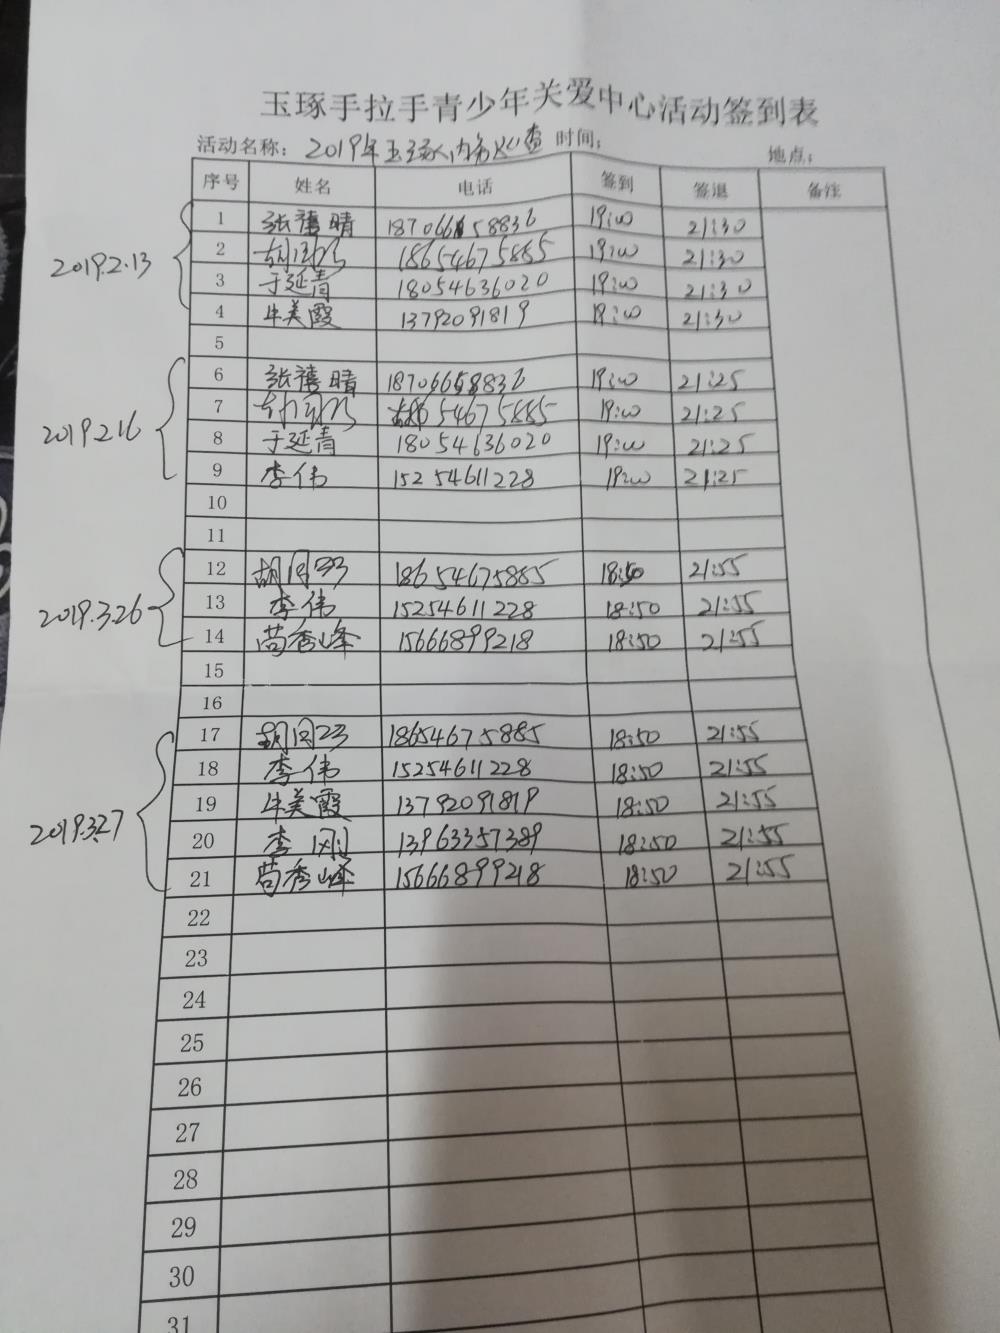 玉琢手拉手青少年关爱中心活动签到表
活动名称：2019年玉琢内务 时间： 地点：
序号 姓名 电话 签到 签退 备注
2019.2.13
1 张禧晴 18706658836 19:00 21:30
2 18654675885 19:00 21:30
3 于延青 18054636020 19:00 21:30
4 牛美霞 13792091819 19:00 21:30
5
2019.2.16
6 张禧晴 18706658836 19:00 21:25
7 54675885 19:00 21:25
8 于延青 18054636020 19:00 21:25
9 李伟 15254611228 19:00 21:25
10
11
2019.3.26
12 胡 18654675885 18:50 21:55
13 李伟 15254611228 18:50 21:55
14 苘秀峰 15666899218 18:50 21:55
15
16
2019.3.27
17 胡 18654675885 18:50 21:55
18 李伟 15254611228 18:50 21:55
19 牛美霞 13792091819 18:50 21:55
20 李刚 13963357389 18:50 21:55
21 苘秀峰 15666899218 18:50 21:55
22
23
24
25
26
27
28
29
30
31